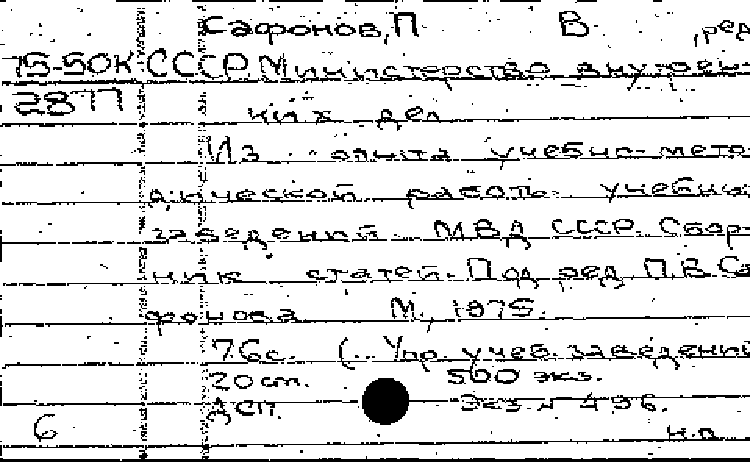 Сафонов, П В. , ред
75-50К СССР. Министерство внутрен-
2877 них дел
Из опыта учебно-мето-
дической работы учебных
заведений МВД СССР. Сбор-
ник статей. Под ред. П.В. Са
фонова М., 1975.
76с. (.. Упр. учеб. заведений
20 ст. 500 экз.
ДСП. Экз. № 496.
6 н.п